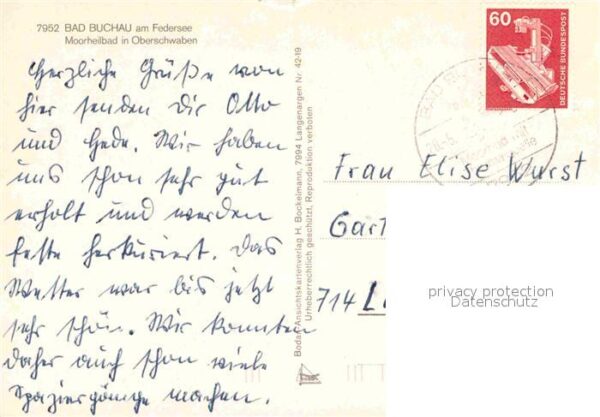 7952 BAD BUCHAU am Federsee
Moorheilbad in Oberschwaben
Herzliche Grüße von
hier senden Dir Otto
und Hede. Wir haben
uns schon sehr gut
erholt und werden
feste herkuriert. Das
Wetter war bis jetzt
sehr schön. Wir konnten
daher auch schon viele
Spaziergänge machen.
Bodan-Ansichtskartenverlag H. Bockelmann, 7994 Langenargen Nr. 42-19
Urheberrechtlich geschützt, Reproduktion verboten
60
DEUTSCHE BUNDESPOST
BAD BU
Frau Elise Wurst
Gart
714 L
privacy protection
Datenschutz